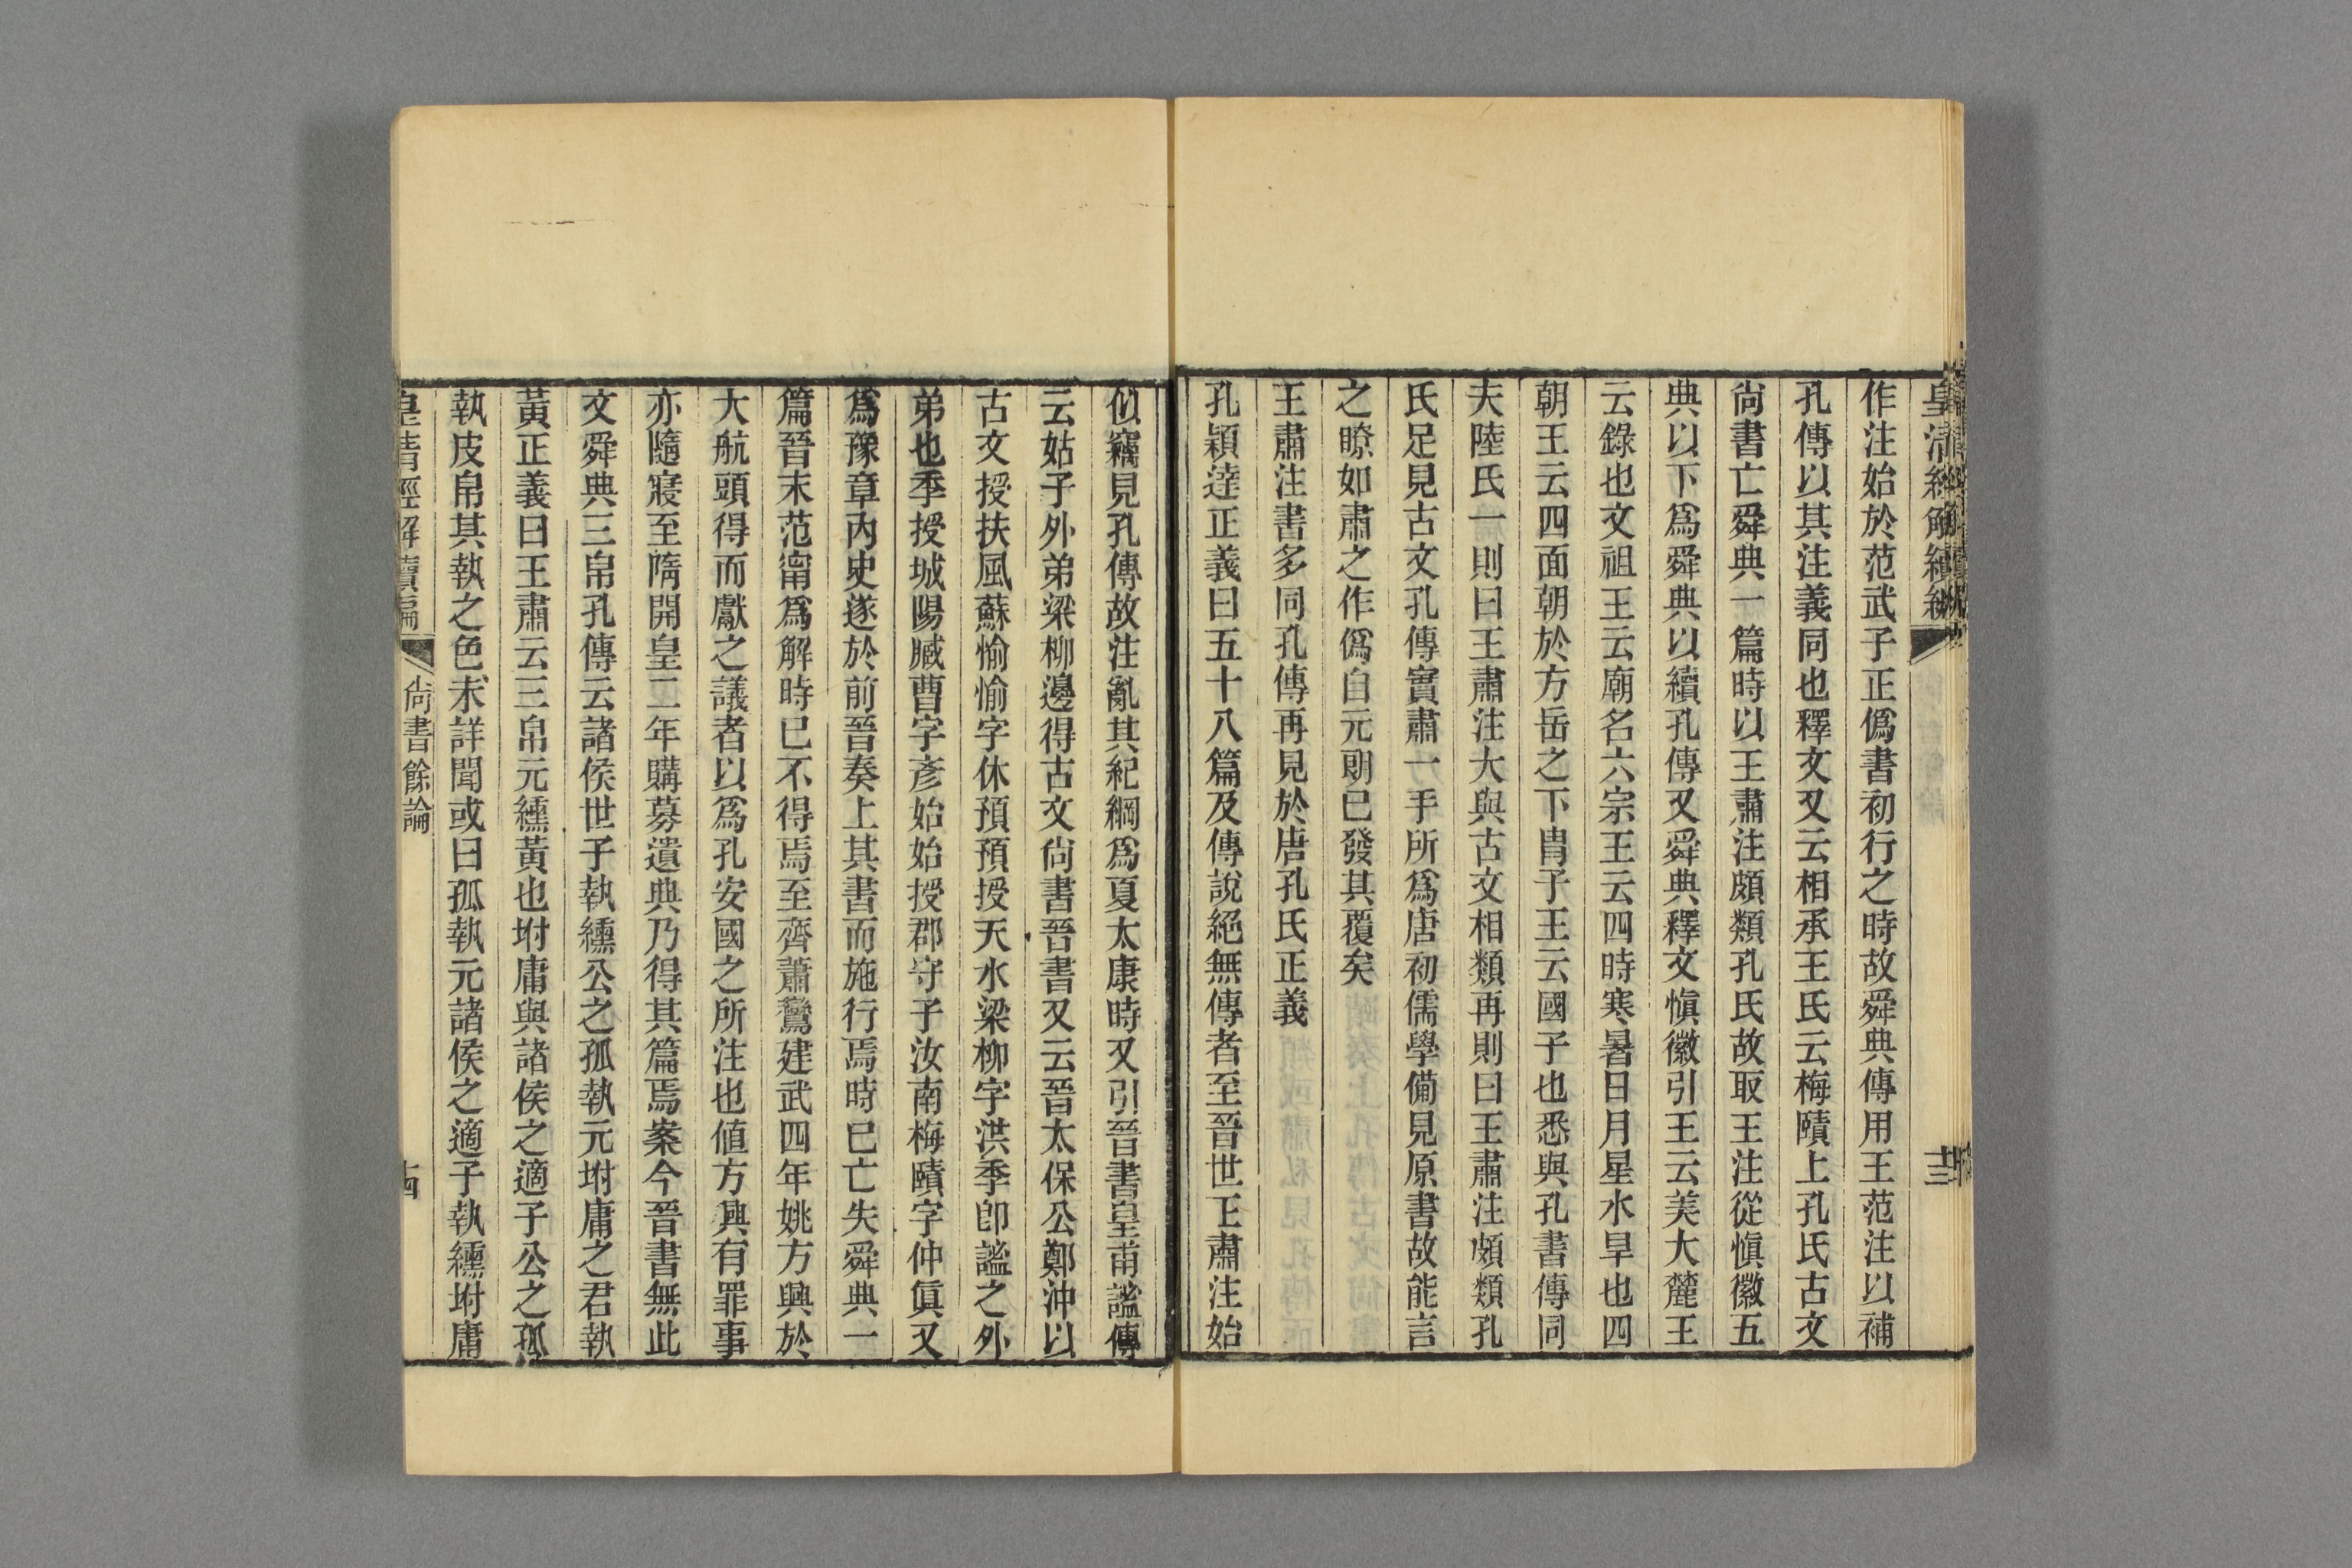 皇清經解續編
十三
作注始於范武子正僞書初行之時故舜典傳用王范注以補
孔傳以其注義同也釋文又云相承王氏云梅賾上孔氏古文
尙書亡舜典一篇時以王肅注頗類孔氏故取王注從愼徽五
典以下爲舜典以續孔傳又舜典釋文愼徽引王云美大麓王
云錄也文祖王云廟名六宗王云四時寒暑日月星水旱也四
朝王云四面朝於方岳之下冑子王云國子也悉與孔書傳同
夫陸氏一則曰王肅注大與古文相類再則曰王肅注頗類孔
氏足見古文孔傳實肅一手所爲唐初儒學僃見原書故能言
之瞭如肅之作僞自元朗已發其覆矣
王肅注書多同孔傳再見於唐孔氏正義
孔穎達正義曰五十八篇及傳說絕無傳者至晉世王肅注始
似竊見孔傳故注亂其紀綱爲夏太康時又引晉書皇甫謐傳
云姑子外弟梁柳邊得古文尙書晉書又云晉太保公鄭沖以
古文授扶風蘇愉愉字休預預授天水梁柳字洪季卽謐之外
弟也季授城陽臧曹字彥始始授郡守子汝南梅賾字仲眞又
爲豫章內史遂於前晉奏上其書而施行焉時已亡失舜典一
篇晉末范甯爲解時已不得焉至齊蕭鸞建武四年姚方興於
大航頭得而獻之議者以爲孔安國之所注也値方興有罪事
亦隨寢至隋開皇二年購募遺典乃得其篇焉案今晉書無此
文舜典三帛孔傳云諸侯世子執纁公之孤執元坿庸之君執
黃正義曰王肅云三帛元纁黃也坿庸與諸侯之適子公之孤
執皮帛其執之色未詳聞或曰孤執元諸侯之適子執纁坿庸
皇清經解續編
尙書餘論
十四